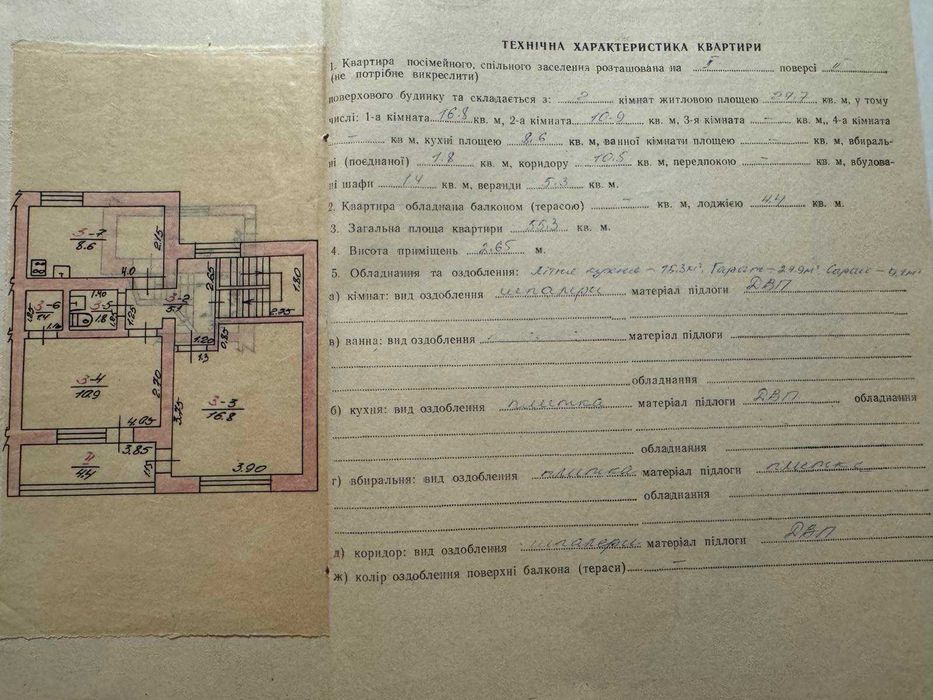 ТЕХНІЧНА ХАРАКТЕРИСТИКА КВАРТИРИ
1. Квартира посімейного, спільного заселення розташована на II поверсі II
(не потрібне викреслити)
поверхового будинку та складається з: 2 кімнат житловою площею 27.7 кв. м, у тому
числі: 1-а кімната 16.8 кв. м, 2-а кімната 10.9 кв. м, 3-я кімната - кв. м,, 4-а кімната
- кв м, кухні площею 8.6 кв. м, ванної кімнати площею - кв. м, вбираль-
ні (поєднаної) 1.8 кв. м, коридору 10.5 кв. м, передпокою - кв. м, вбудова-
ні шафи 1.4 кв. м, веранди 5.3 кв. м.
2. Квартира обладнана балконом (терасою) - кв. м, лоджією 4.4 кв. м.
3. Загальна площа квартири 55.3 кв. м.
4. Висота приміщень 2.65 м.
5. Обладнання та оздоблення: Літня кухня - 15.3м² Гараж - 24.9м² Сарай -
а) кімнат: вид оздоблення шпалери матеріал підлоги ДВП
в) ванна: вид оздоблення матеріал підлоги
обладнання
б) кухня: вид оздоблення плитка матеріал підлоги ДВП обладнання
обладнання
г) вбиральня: вид оздоблення плитка матеріал підлоги плитка
обладнання
д) коридор: вид оздоблення шпалери матеріал підлоги ДВП
ж) колір оздоблення поверхні балкона (тераси) -
3-7
8.6
2.15
4.0
2.65
1.80
2.35
3-6
1.4
1.40
3-5
1.8
1.25
3-2
5.1
1.20
0.85
1.3
3-4
10.9
2.70
4.05
3-3
16.8
3.75
3.85
4.4
1.15
3.90